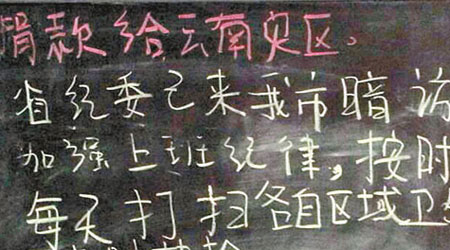 捐款给云南灾区。
省纪委已来我市暗访
加强上班纪律,按时
每天打扫各自区域卫